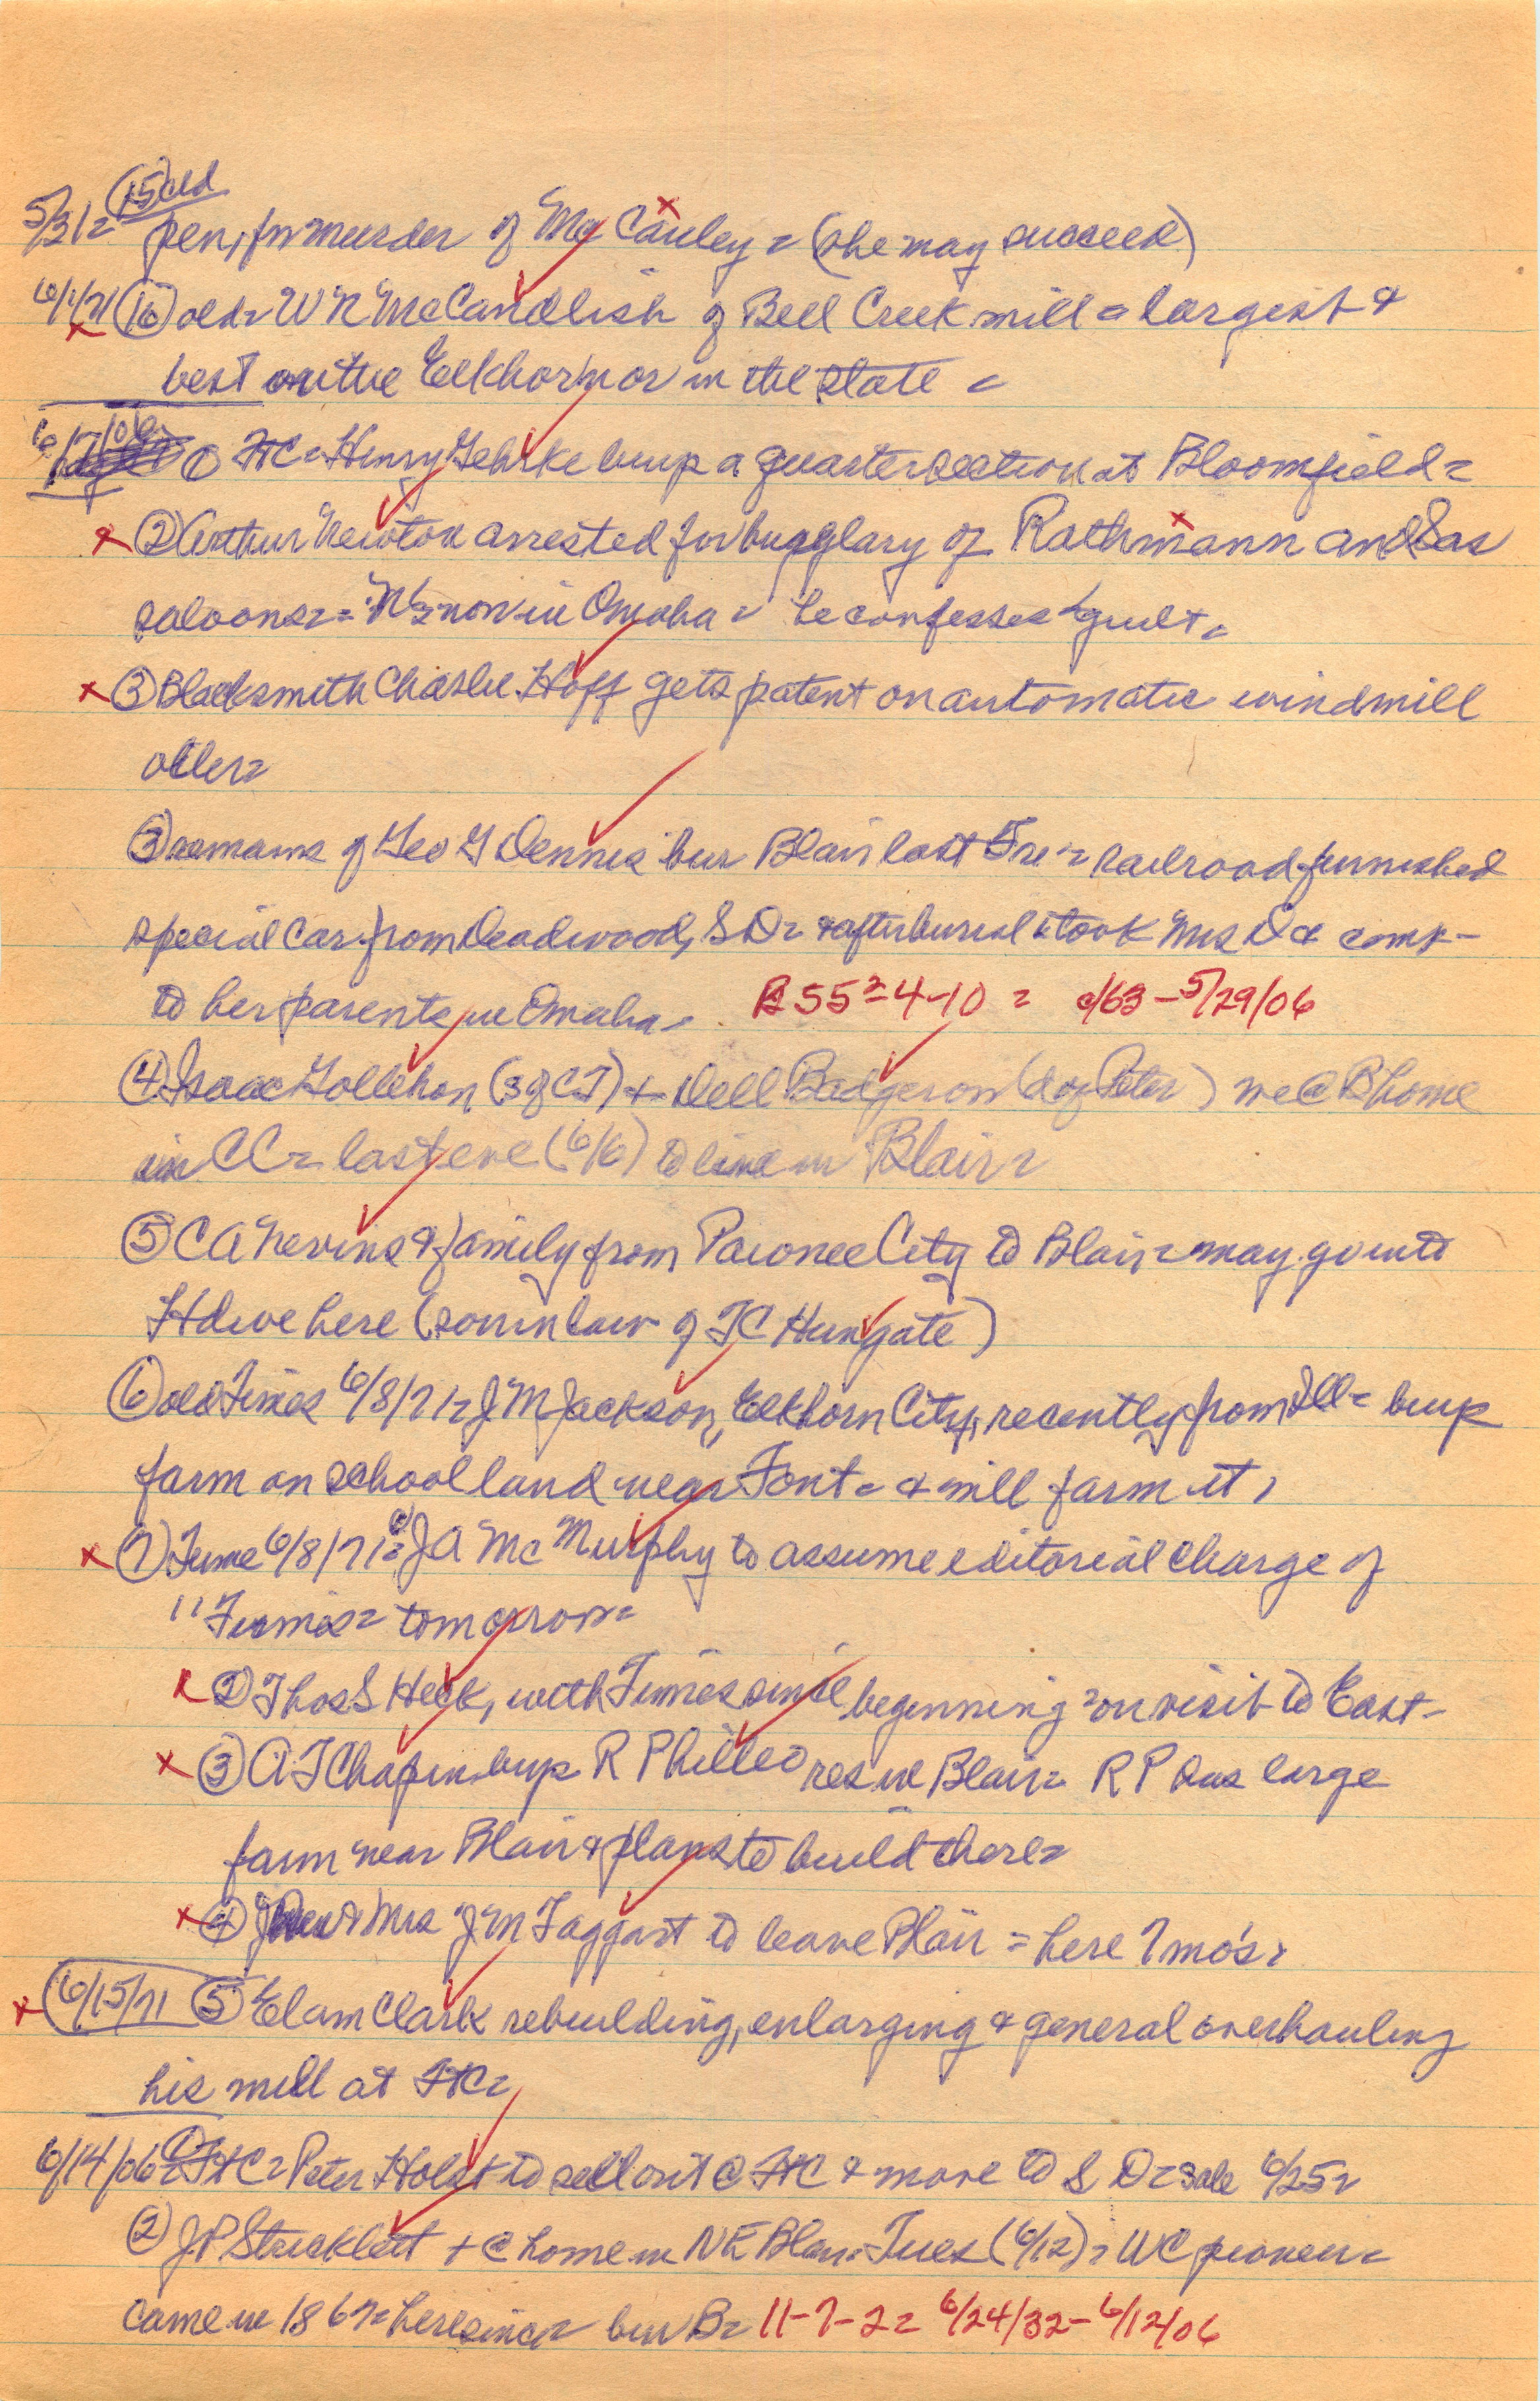 5/31= (15) old
pen, for murder of Mc Cauley = (she may succeed)
6/1/71 (16) old= W R McCandlish of Bell Creek mill = largest &
best on the Elkhorn or in the state =
6/7/06 ① FtC= Henry Gehrke buys a quarter section at Bloomfield=
② Arthur Newton arrested for burglary of Rathmann and Sas
saloons= = N= now in Omaha = he confesses guilt=
③ Blacksmith Charlie Hoff gets patent on automatic windmill
oiler=
③ remains of Geo G Dennis bur Blair last Fri = railroad furnished
special car from Deadwood, S D= & after burial took Mrs D &
to her parents in Omaha= 55=4-10 = c/63 - 5/29/06
④ Isaac Gollehon (s of CT) + Dell Badgerow (d of Peter) m @ B home
in CC= last eve (6/6) to live in Blair=
⑤ C A Nevins & family from Pawnee City to Blair= may go into
Hdwe here (son in law of TC Hungate)
⑥ old Times 6/8/71= J M Jackson, Elkhorn City, recently from Ill= buys
farm on school land near Font= & will farm it,
⑦ Times 6/8/71= ① J A McMurphy to assume editorial charge of
" Times= tomorrow=
② Thos S Heck, with Times since beginning = on visit to East-
③ A T Chapin buys R Philleo res in Blair= R P has large
farm near Blair & plans to build there=
④ Rev & Mrs J M Taggart to leave Blair = here 7 mo's=
6/15/71 ⑤ Elam Clark rebuilding, enlarging & general overhauling
his mill at FtC=
6/14/06= ① FtC= Peter Holst to sell out @ FtC & move to S D= sale 6/25=
② J P Stricklett + @ home in NE Blair= Tues (6/12)= WC pioneer=
came in 1867= here since= bur B= 11-7-2= 6/24/32- 6/12/06